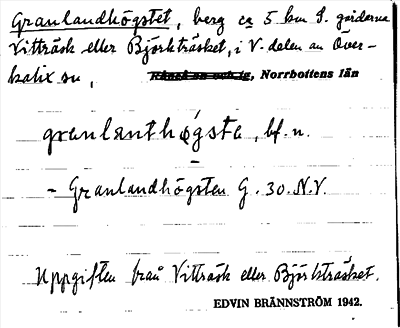 Granlandhögstet, berg ca 5 km S. gårdarna
Vitträsk eller Björkträsket, i V. delen av Över-
kalix sn, Norrbottens län
granlanthøgsta, bf. n.
- Granlandhögsten G. 30. N.V.
Uppgiften från Vitträsk eller Björkträsket.
EDVIN BRÄNNSTRÖM 1942.